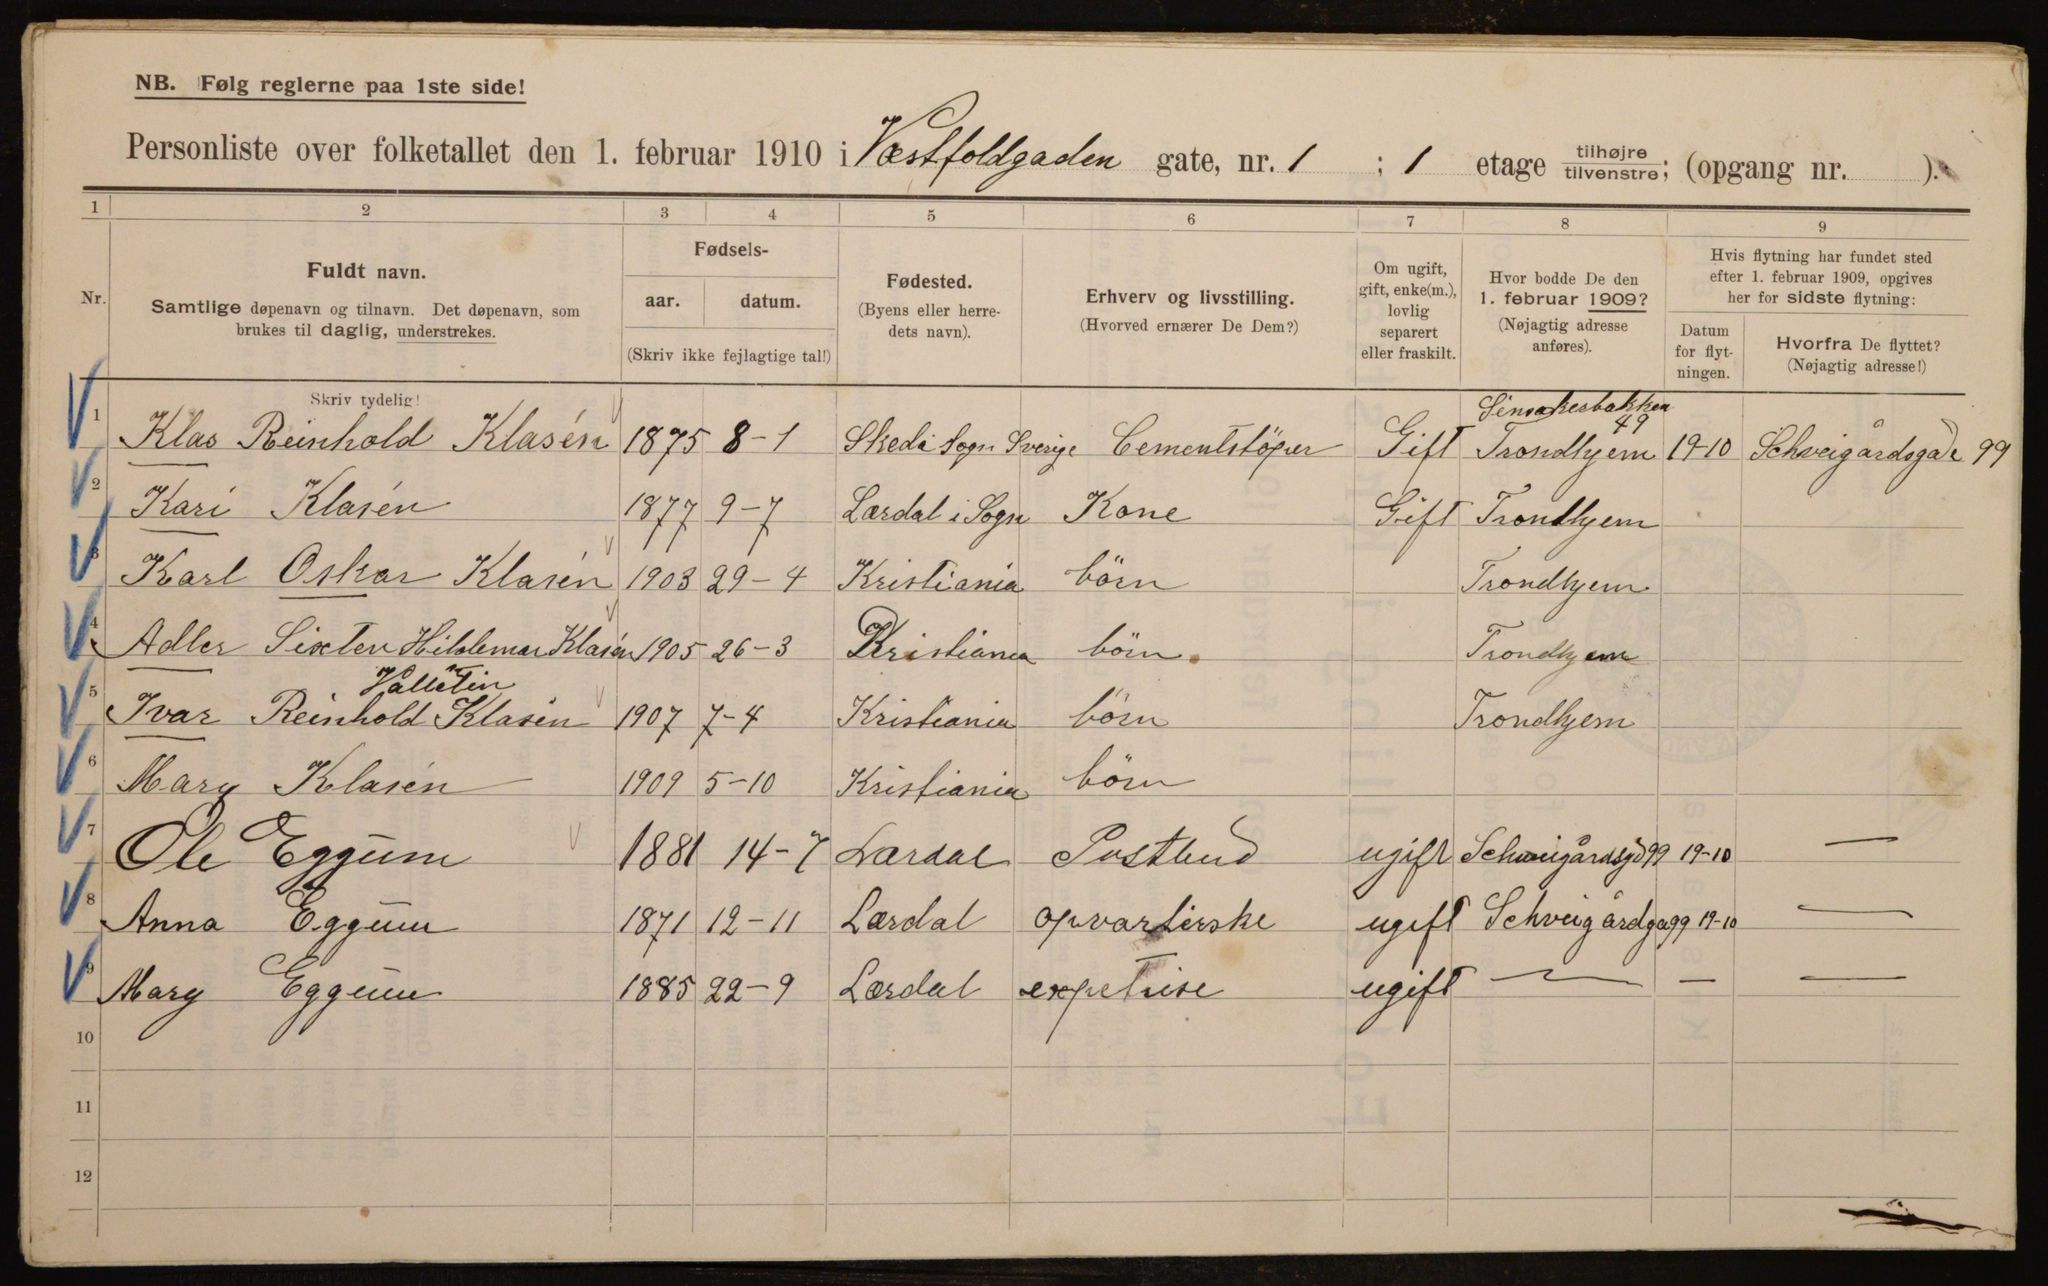 NB. Følg reglerne paa 1ste side!
Personliste over folketallet den 1. februar 1910 i Væstfoldgaden gate, nr. 1 ; 1 etage tilhøjre/tilvenstre; (opgang nr. ).
1 2 3 4 5 6 7 8 9
Nr.
Fuldt navn.
Samtlige døpenavn og tilnavn. Det døpenavn, som
brukes til daglig, understrekes.
Fødsels-
aar. datum.
(Skriv ikke fejlagtige tal!)
Fødested.
(Byens eller herre-
dets navn).
Erhverv og livsstilling.
(Hvorved ernærer De Dem?)
Om ugift,
gift, enke(m.),
lovlig
separert
eller fraskilt.
Hvor bodde De den
1. februar 1909?
(Nøjagtig adresse
anføres).
Hvis flytning har fundet sted
efter 1. februar 1909, opgives
her for sidste flytning:
Datum
for flyt-
ningen.
Hvorfra De flyttet?
(Nøjagtig adresse!)
Skriv tydelig!
49
1 Klas Reinhold Klasén 1875 8-1 Skeda Sogn Sverige Cementstöper Gift Trondhjem 19-10 Schveigårdsgade 99
2 Kari Klasén 1877 9-7 Lærdal i Sogn Kone Gift Trondhjem
3 Karl Oskar Klasén 1903 29-4 Kristiania börn Trondhjem
4 Adler Sixten Hildemar Klasén 1905 26-3 Kristiania börn Trondhjem
5 Ivar Reinhold Klasén 1907 7-4 Kristiania börn Trondhjem
6 Mary Klasén 1909 5-10 Kristiania börn
7 Ole Eggum 1881 14-7 Lærdal Postbud ugift Schweigårdsgd 99 19-10 —
8 Anna Eggum 1871 12-11 Lærdal opvarterske ugift Schveigårdga 99 19-10 —
9 Mary Eggum 1885 22-9 Lærdal expetrise ugift — — —
10
11
12